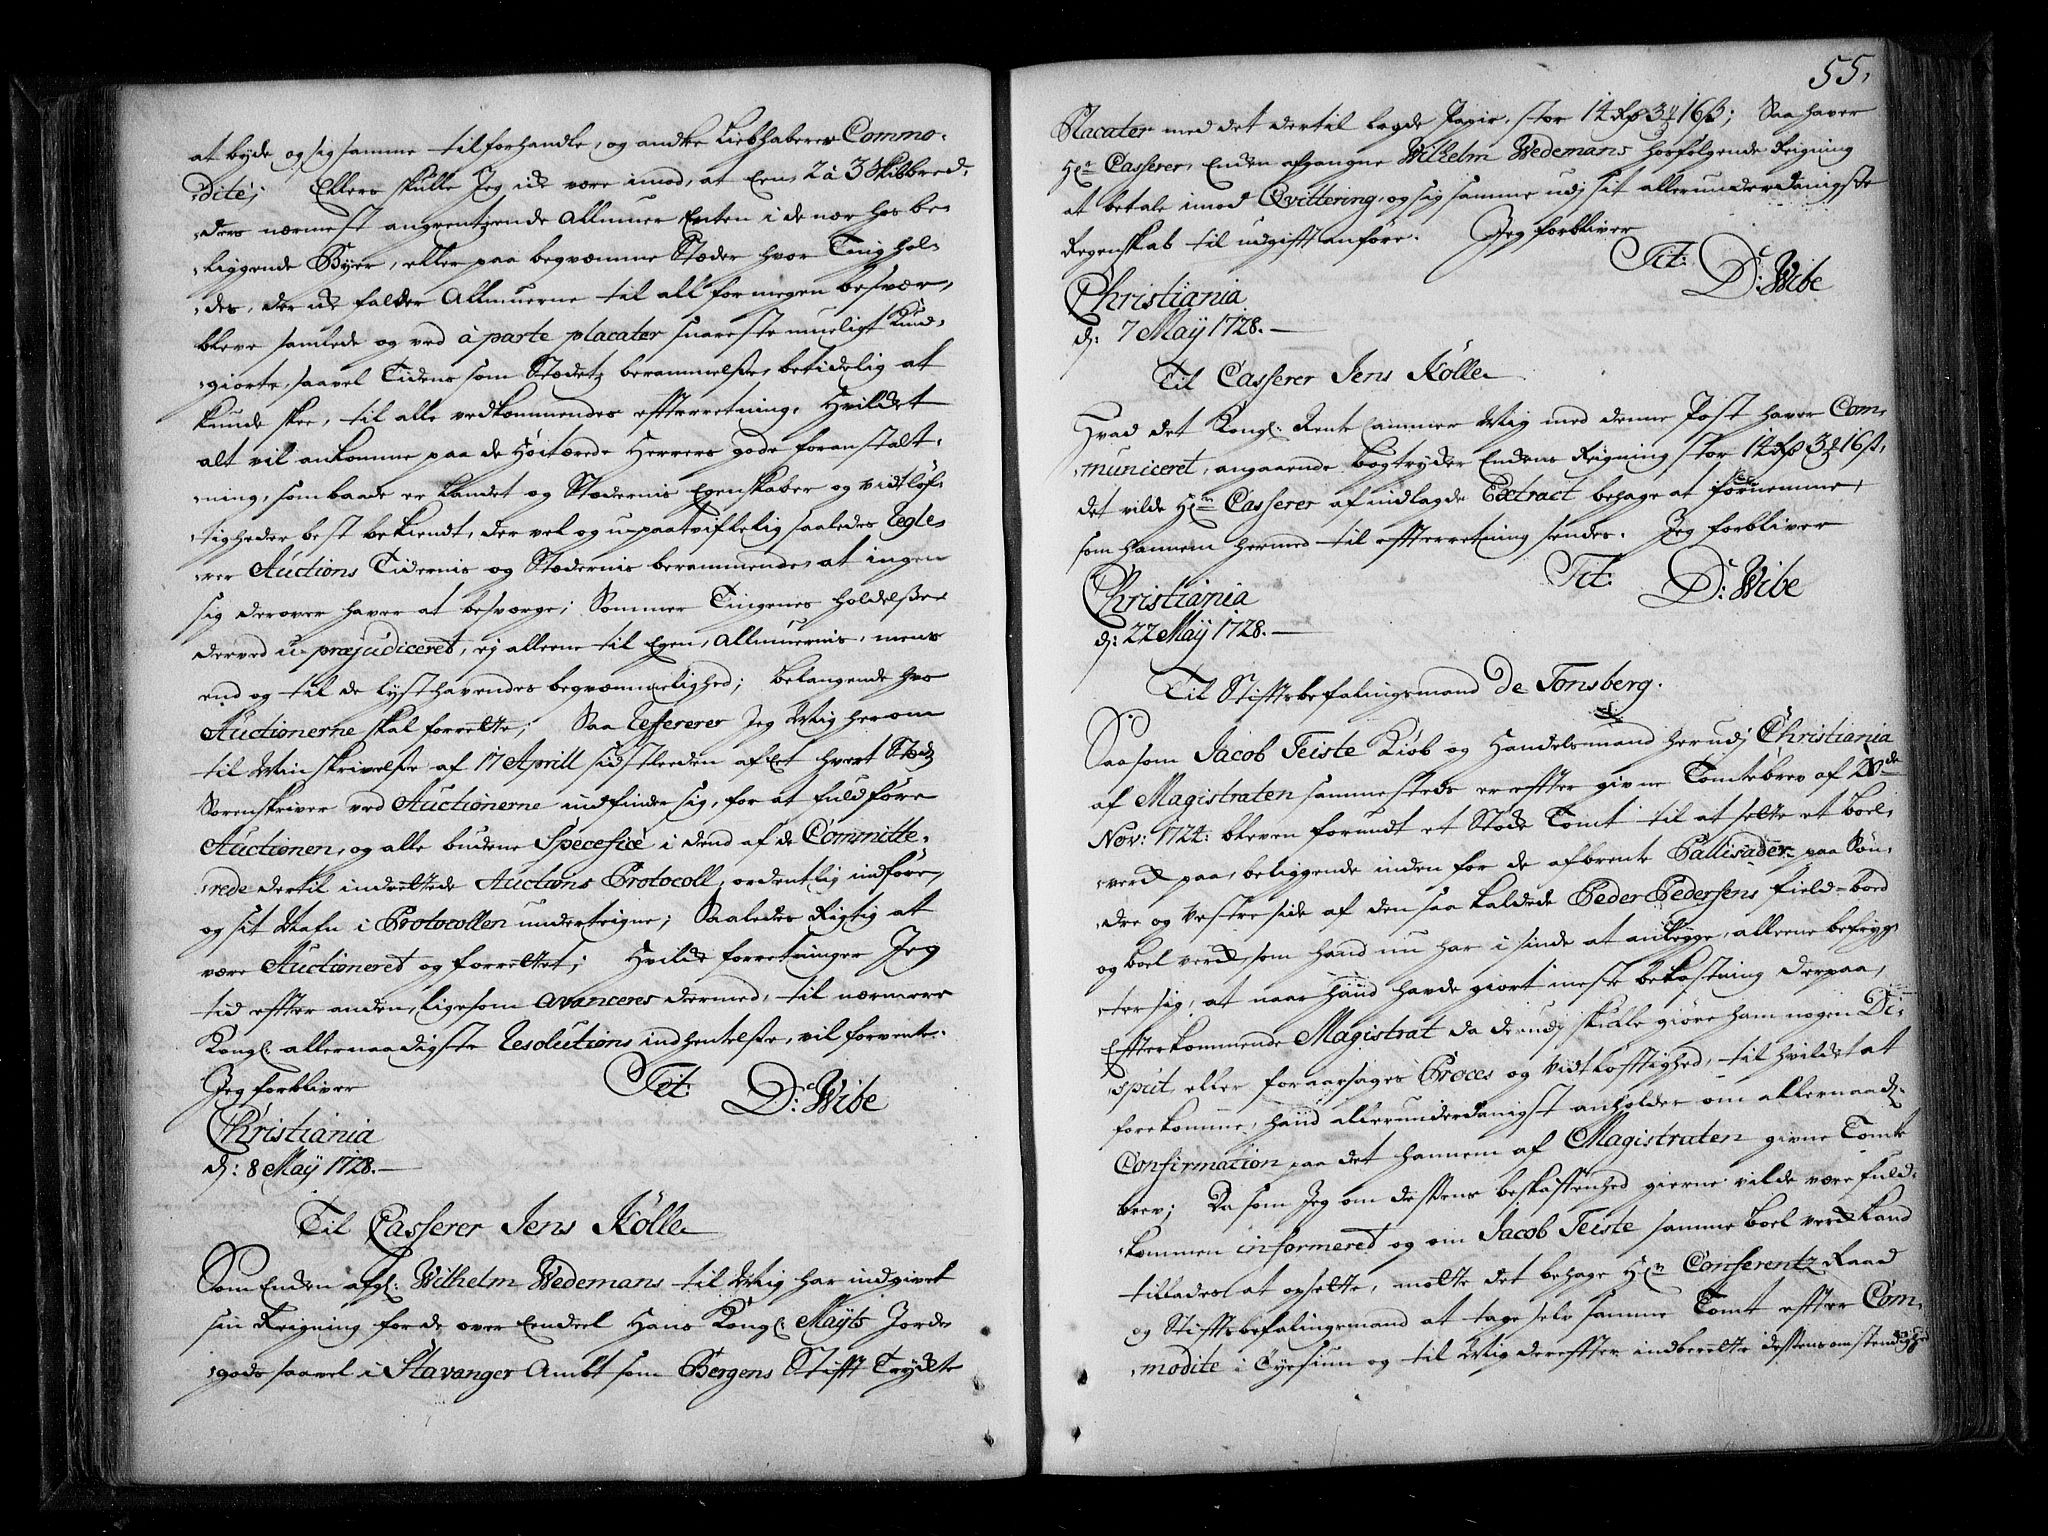 at byde og sig samme tilforhandle, og andre Liebhaberes Commo-
dite; Ellers skulle Jeg icke være imod, at Een, 2 à 3 Skibbred,
ders nærmest angrentzende Allmuer Enten i de nær hos be-
liggende Byer, eller paa beqvemme Stæder hvor Ting hol-
des, der icke falder Allmuerne til all for megen besvær,
bleve samlede og ved à parte placater snareste mueligt Kund-
giorte, saavel Tidens som Stædetz berammelse, betidelig at
kunde skee, til alle vedkommendes effterretning. Hvilcket
alt vil ankomme paa de Høitærede Herrers gode foranstalt-
ning, som baade er Landet og Stædernis Egenskaber og vidtløf-
tigheder best bekiendt, der vel og upaatvifflelig saaledes Regle-
rer Auctions Tidernis og Stædernis berammende, at ingen
sig derover haver at besverge; Sommer Tingenes holdelse
derved u-præjudiceret, ej alleene til Egen, Allmuernis, mens
end og til de lysthavendes beqvemmelighed; Belangende hvo
Auctionerne skal forrette; Saa Refererer Jeg Mig herom
til Min skrivelse af 17 Aprill sidstleeden at Et hvert Stedz
Sorenskriver ved Auctionerne indfinder sig, for at fuldføre
Auctionen, og alle budene Specificè i dend af de Committe-
rede dertil indrettede Auctions Protocoll, ordentlig indføre,
og sit Nafn i Protocollen underteigne; Saaledes Rigtig at
være Auctioneret og forrettet; Hvilcke forretninger Jeg
tid effter anden, ligesom avanceres dermed, til nærmere
Kongl: allernaadigste Resolutions indhentelse, vil forvente.
Jeg forbliver Tit: D: Wibe
Christiania
d: 8 May 1728.
Til Casserer Jens Kølle
Som Enden afg: Wilhelm Wedemans til Mig har indgivet
sin Reigning for de over Eendeel Hans Kongl: Mayts Jorde-
gods saavel i Stavanger Ambt som Bergens Stifft Tryckte
55.
Placater med det dertil lagde Papir, stor 14 Rd 3 16 s; Saa haver
Hr. Casserer, Enden afgangne Wilhelm Wedemans hosfølgende Reigning
at betale imod Qvittering, og sig samme udj sit allerunderdanigste
Regenskab til udgifft anføre. Jeg forbliver
Tit: D: Wibe
Christiania
d: 7 May 1728.
Til Casserer Jens Kølle
Hvad det Kongl: Rente Cammer Mig med denne Post haver Com-
municeret, angaaende bogtrycker Endens Reigning stor 14 Rd 3 16 s,
det vilde Hr. Casserer af indlagde Extract behage at fornemme,
som hannem hermed til effterretning sendes. Jeg forbliver
Tit: D: Wibe
Christiania
d: 22 May 1728.
Til Stifftsbefalingsmand De Tonsberg.
Saasom Jacob Teiste Kiøb og Handelsmand her udj Christiania
af Magistraten sammesteds er effter givne Tomtebrev af 20de
Nov: 1724: bleven forundt et Støcke Tomt til at sette et boel-
verck paa, beliggende inden for de afbrente Pallisader paa Søn-
dre og Vestre side af den saa kaldede Peder Pedersens field-bord
og boelverck, som hand nu har i sinde at anlegge, alleene befryg-
ter sig, at naar hand havde giort meste bekostning derpaa,
Effterkommende Magistrat da derudj skulle giøre ham nogen Di-
sput, eller foraarsages Proces og Vidtløfftighed, til hvilcket at
forekomme, hand allerunderdanigst anholder om allernaad:
Confirmation paa det hannem af Magistraten givne Tomte
brev; Da som Jeg om dessens beskaffenhed gierne vilde være fuld-
kommen informeret og om Jacob Teiste samme boelverck kand
tillades at opsette, motte det behage Hr. Conferentz Raad
og Stifftsbefalingsmand at tage selv samme Tomt effter Com-
modite i Øyesiun og til Mig dereffter indberette dessens omstendighed